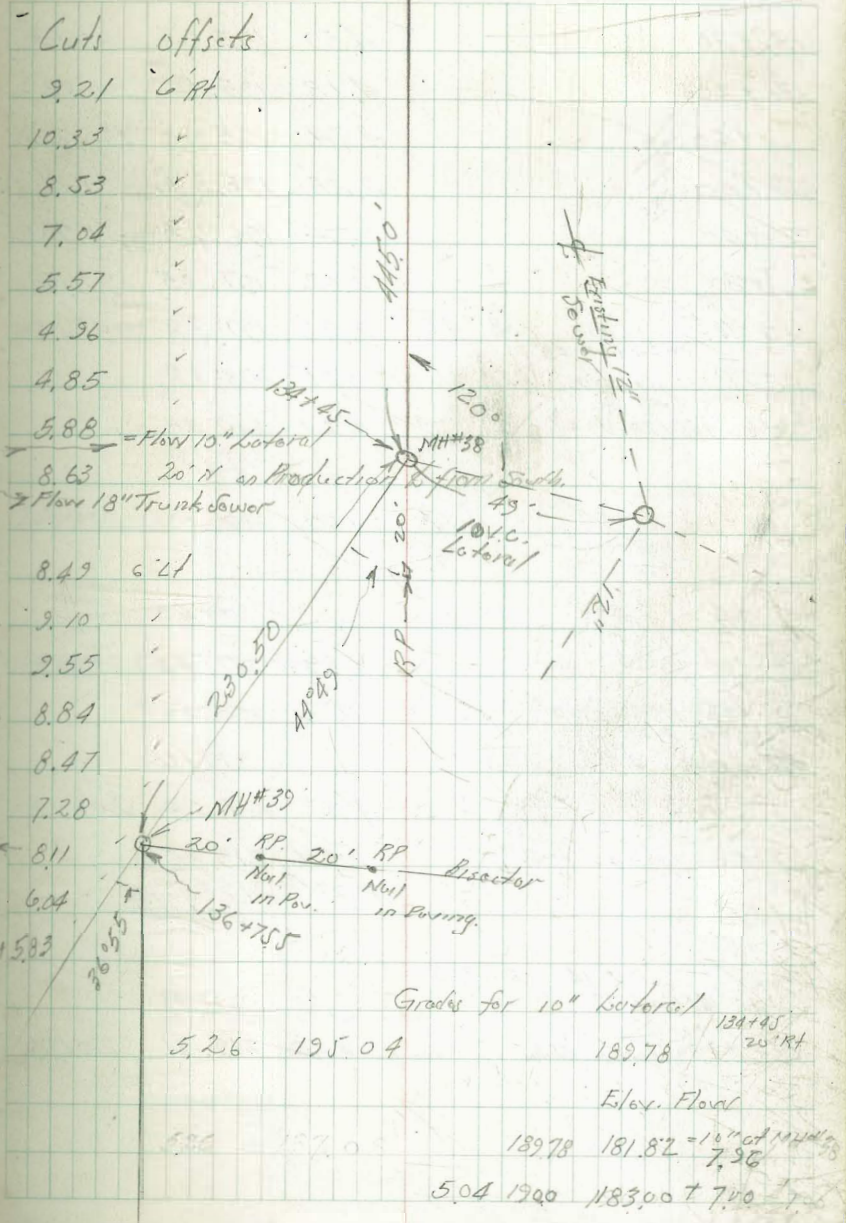 Cuts offsets
9.21 6' Rt.
10.33 "
8.53 "
7.04 "
5.57 "
4.96 "
4.85 "
5.88 = Flow 10" Lateral
8.63 20' N on Production ℄ from South.
Flow 18" Trunk Sewer
8.49 6' Lt
9.10 "
9.55 "
8.84 "
8.47 "
7.28 "
8.11 "
6.04
5.83
445.0'
℄ Existing 12"
Sewer
134+45
120°
MH#38
49'
10" V.C.
Lateral
12"
RP 20'
230.50
44°49
MH#39
20' RP. 20' RP Bisector
Nail Nail
in Pav. in Paving.
136+75.5
36°55
Grades for 10" Lateral
5.26 195.04 189.78 134+45
20' Rt
Elev. Flow
189.78 181.82 = 10" at MH#38
7.96
5.04 190.0 183.00 + 7.00